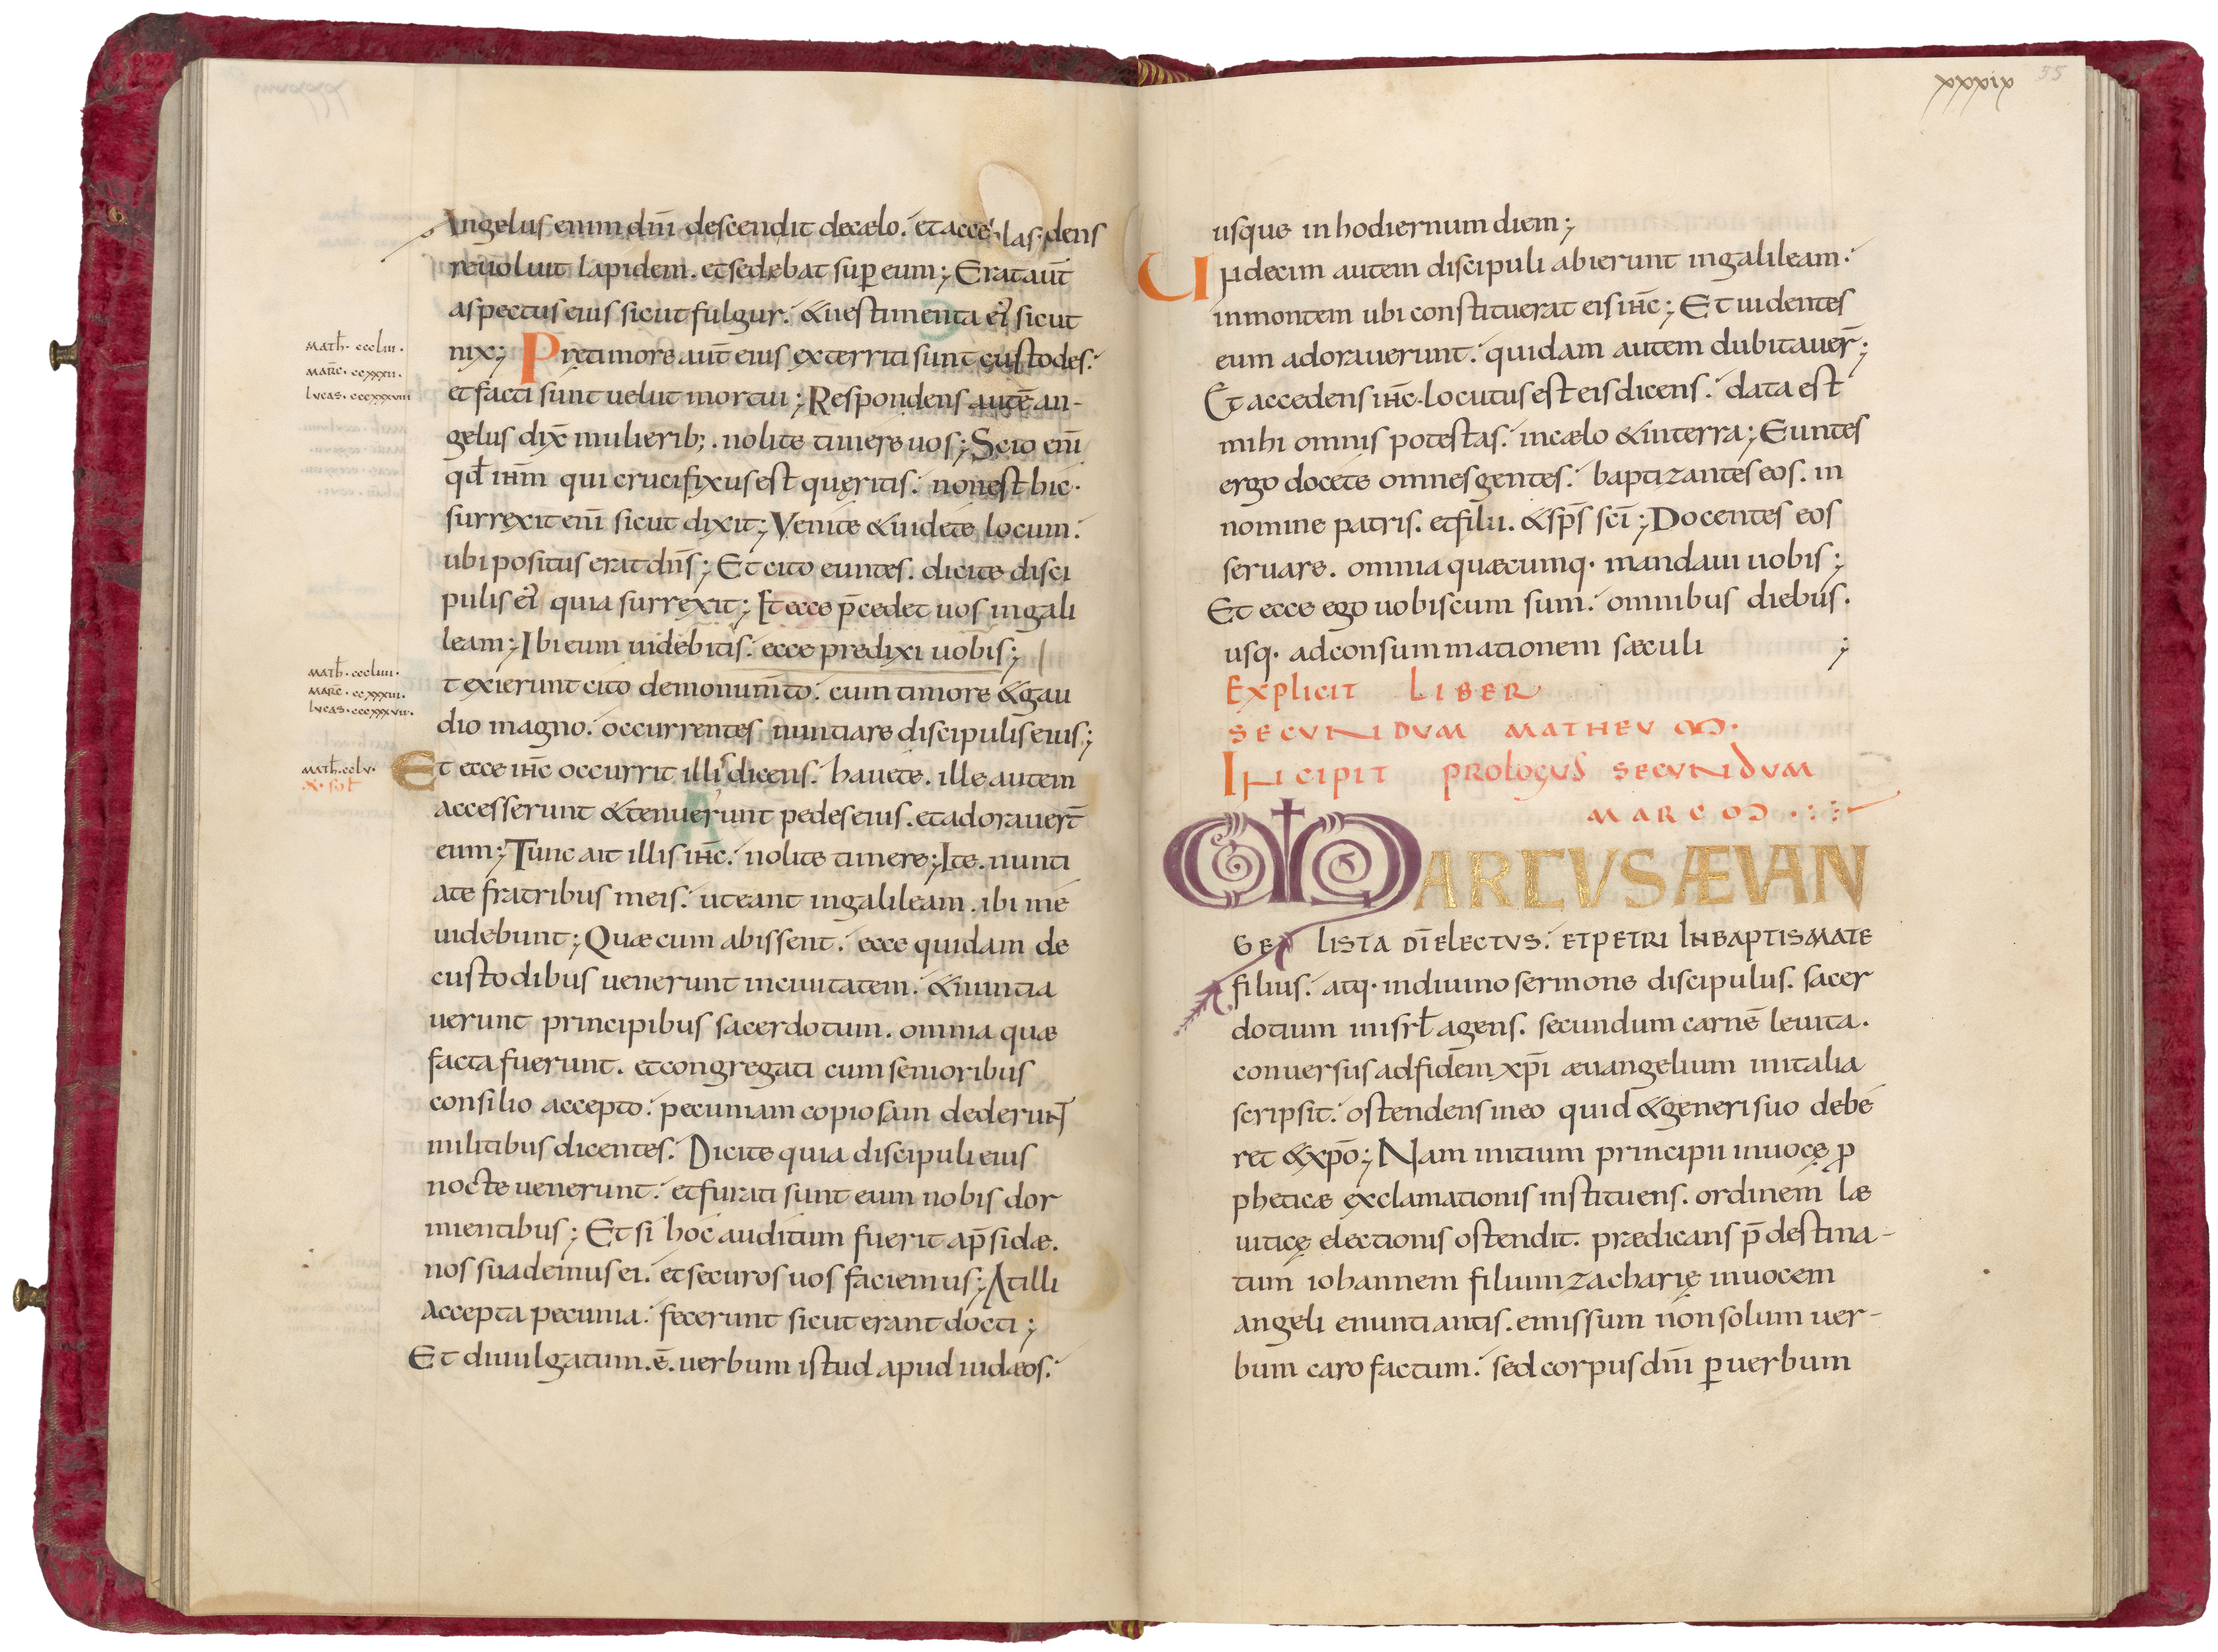 Angelus enim dnī descendit decælo. et acce las dens
reuoluit lapidem. et sedebat suꝑ eum; Erat aut̄
aspectus eius sicut fulgur. & uestimenta ei' sicut
nix; Prętimore aut̄ eius exterriti sunt custodes.
et facti sunt uelut mortui; Respondens autē an-
gelus dix̄ mulierib;. nolite timere uos; Scio enī
qđ ihm̄ qui crucifixus est queritis. non est hic.
surrexit enī sicut dixit; Venite & uidete locum.
ubi positus erat dn̄s; Et cito euntes. dicite disci
pulis ei' quia surrexit; Et ecce p̄cedet uos ingali
leam; Ibi eum uidebitis. ecce predixi uobis;
t exierunt cito demonum̄to. cum timore & gau
dio magno. occurrentes nuntiare discipulis eius;
Et ecce ihc̄ occurrit illis dicens. hauete. ille autem
accesserunt & tenuerunt pedes eius. et adorauert̄
eum; Tunc ait illis ihc̄. nolite timere; Ite. nunti
ate fratribus meis. ut eant ingalileam. ibi me
uidebunt; Quæ cum abissent. ecce quidam de
custodibus uenerunt inciuitatem. & nuntia
uerunt principibus sacerdotum. omnia quæ
facta fuerunt. et congregati cum senioribus
consilio accepto. pecuniam copiosam dederunt
militibus dicentes. Dicite quia discipuli eius
nocte uenerunt. et furati sunt eum nobis dor
mientibus; Et si hoc auditum fuerit ap̄sidæ.
nos suademus ei. et securos uos faciemus; At illi
accepta pecunia. fecerunt sicut erant docti;
Et diuulgatum. ē. uerbum istud apud iudæos.
math̄. cccliii.
marc̄. ccxxxii.
lvcas. cccxxxviii
math̄. cccliiii.
marc. ccxxxiii.
lvcas. cccxxxvii.
math̄. cclv.
x. sol̄
xxxix 55
usque inhodiernum diem;
Undecim autem discipuli abierunt ingalileam.
inmontem ubi constituerat eis ihc̄; Et uidentes
eum adorauerunt. quidam autem dubitauer̄;
Et accedens ihc̄. locutus est eis dicens. data est
mihi omnis potestas. incælo & interra; Euntes
ergo docete omnes gentes. baptizantes eos. in
nomine patris. et filii. & sps̄ scī; Docentes eos
seruare. omnia quæcumq. mandaui uobis;
Et ecce ego uobiscum sum. omnibus diebus.
usq. adconsummationem sæculi ;
Explicit LIBER
SECUNDUM MATHEUM.
INCIPIT PROLOGUS SECUNDUM
MARCOM.
MARCUS ÆVAN
GELISTA DĪ ELECTVS. ET PETRI IN BAPTISMATE
filius. atq. indiuino sermone discipulus. sacer
dotium inisrł agens. secundum carnē leuita.
conuersus adfidem xpī æuangelium initalia
scripsit. ostendens ineo quid & generi suo debe
ret & xpō; Nam initium principii inuocę ꝓ
pheticæ exclamationis instituens. ordinem læ
uiticę electionis ostendit. prædicans p̄destina-
tum iohannem filium zacharię inuocem
angeli enuntiantis. emissum non solum uer-
bum caro factum. sed corpus dnī ꝑ uerbum